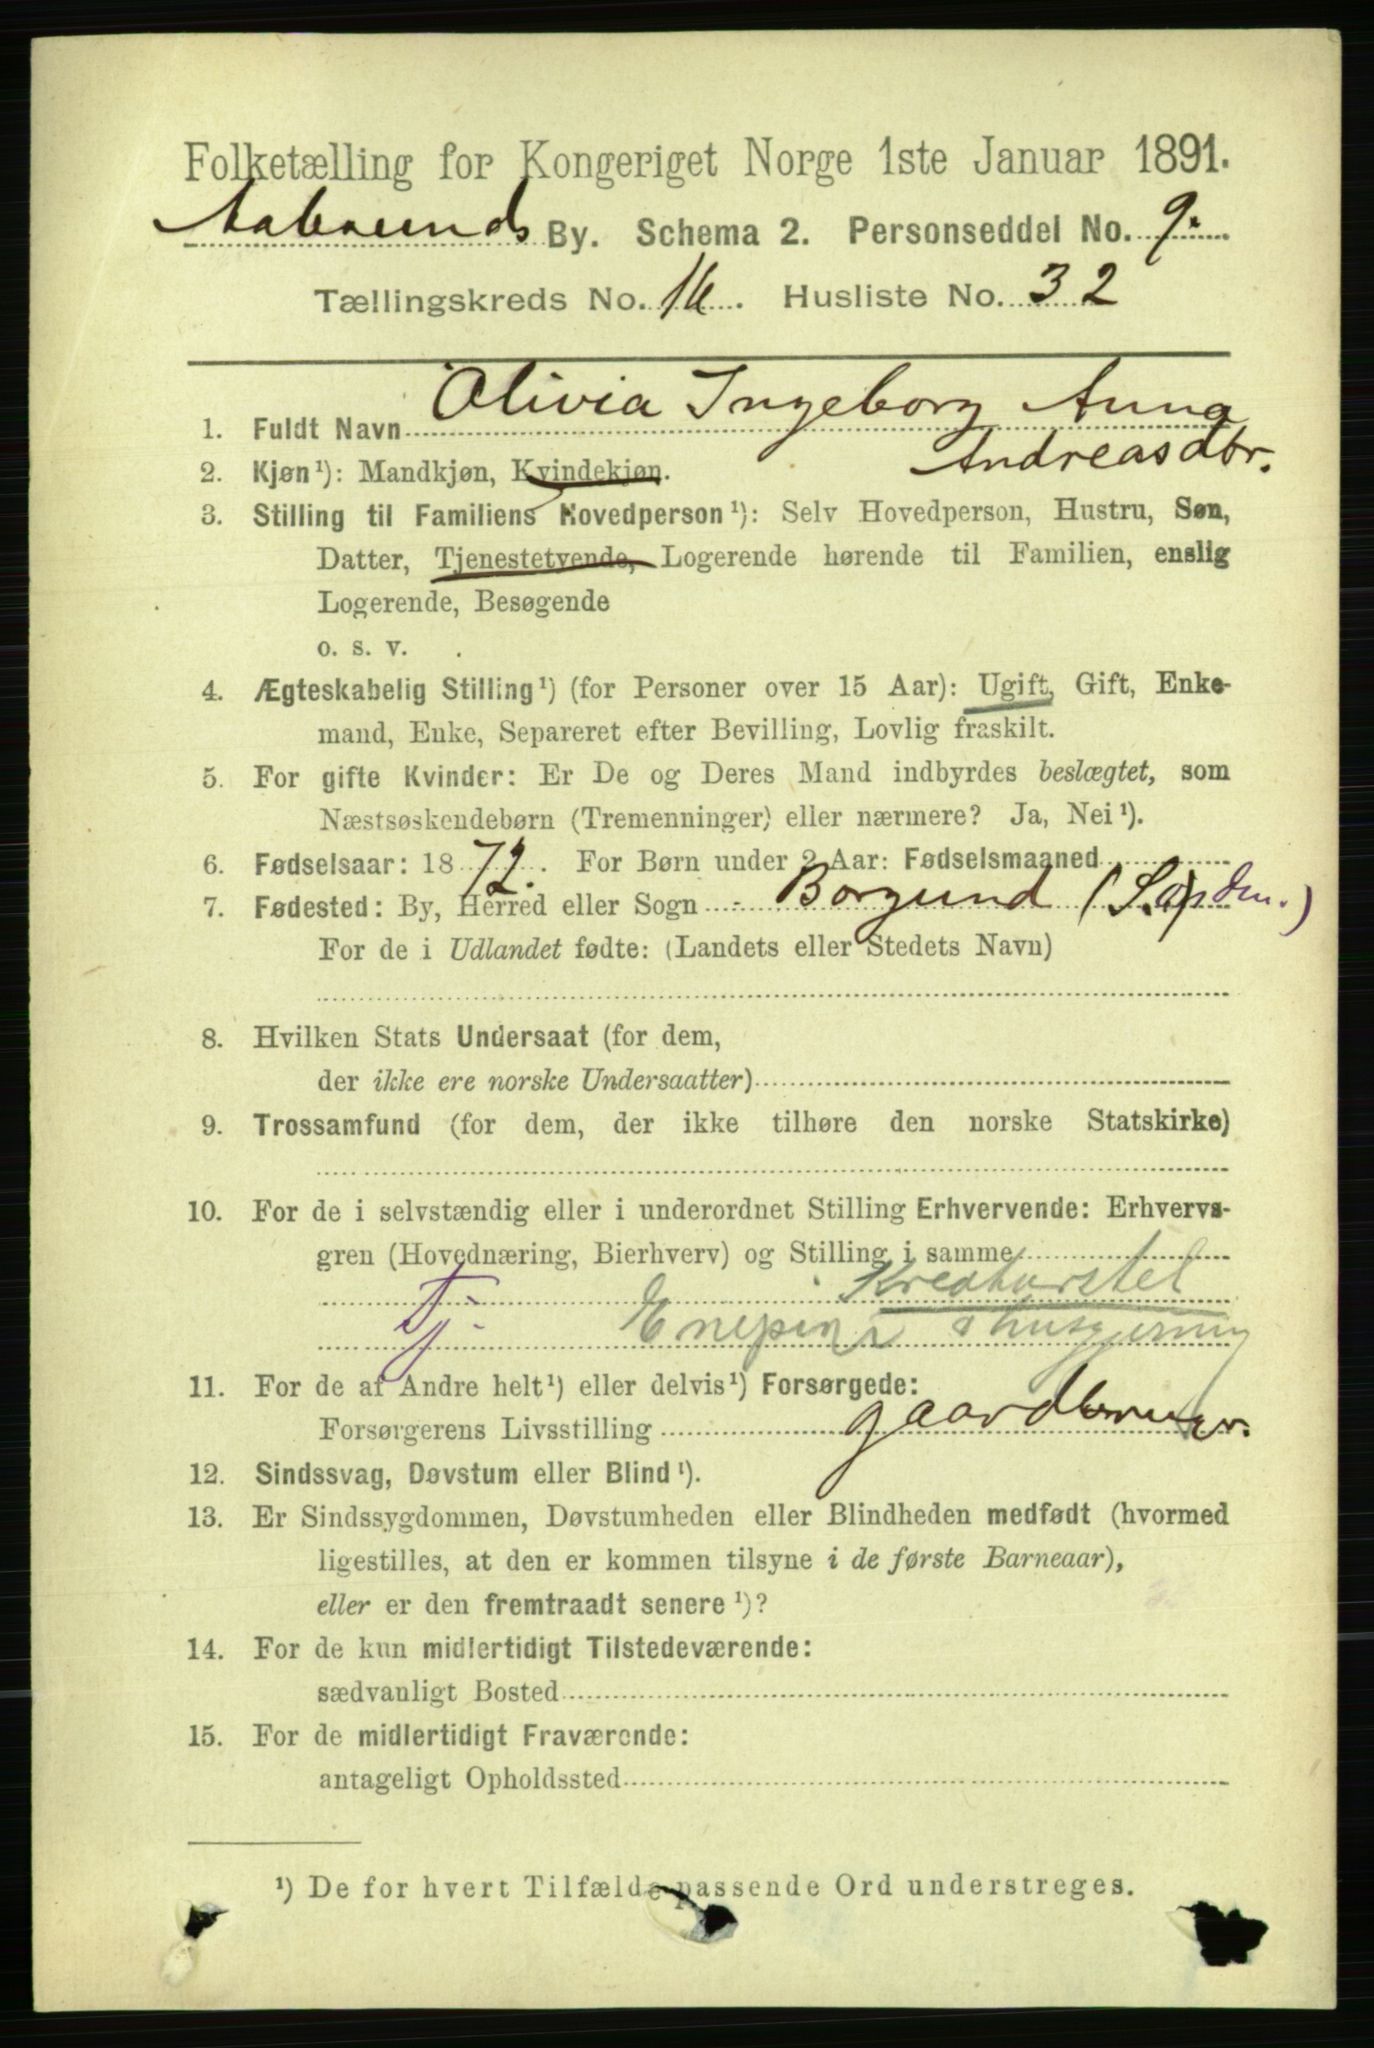 Folketælling for Kongeriget Norge 1ste Januar 1891.
Aalesunds By. Schema 2. Personseddel No. 9.
Tællingskreds No. 16. Husliste No. 32
Olivia Ingeborg Anna
1. Fuldt Navn
Andreasdtr.
2. Kjøn¹): Mandkjøn, Kvindekjøn.
3. Stilling til Familiens Hovedperson¹): Selv Hovedperson, Hustru, Søn,
Datter, Tjenestetyende, Logerende hørende til Familien, enslig
Logerende, Besøgende
o. s. v.
4. Ægteskabelig Stilling¹) (for Personer over 15 Aar): Ugift, Gift, Enke-
mand, Enke, Separeret efter Bevilling, Lovlig fraskilt.
5. For gifte Kvinder: Er De og Deres Mand indbyrdes beslægtet, som
Næstsøskendebørn (Tremenninger) eller nærmere? Ja, Nei¹).
6. Fødselsaar: 1872. For Børn under 2 Aar: Fødselsmaaned
7. Fødested: By, Herred eller Sogn Borgund
For de i Udlandet fødte: (Landets eller Stedets Navn)
8. Hvilken Stats Undersaat (for dem,
der ikke ere norske Undersaatter)
9. Trossamfund (for dem, der ikke tilhøre den norske Statskirke)
10. For de i selvstændig eller i underordnet Stilling Erhvervende: Erhvervs-
gren (Hovednæring, Bierhverv) og Stilling i samme
Kreaturstel
Tj. Enepige husgjerning
11. For de af Andre helt¹) eller delvis¹) Forsørgede:
Forsørgerens Livsstilling gaardbruger.
12. Sindssvag, Døvstum eller Blind¹).
13. Er Sindssygdommen, Døvstumheden eller Blindheden medfødt (hvormed
ligestilles, at den er kommen tilsyne i de første Barneaar),
eller er den fremtraadt senere¹)?
14. For de kun midlertidigt Tilstedeværende:
sædvanligt Bosted
15. For de midlertidigt Fraværende:
antageligt Opholdssted
¹) De for hvert Tilfælde passende Ord understreges.